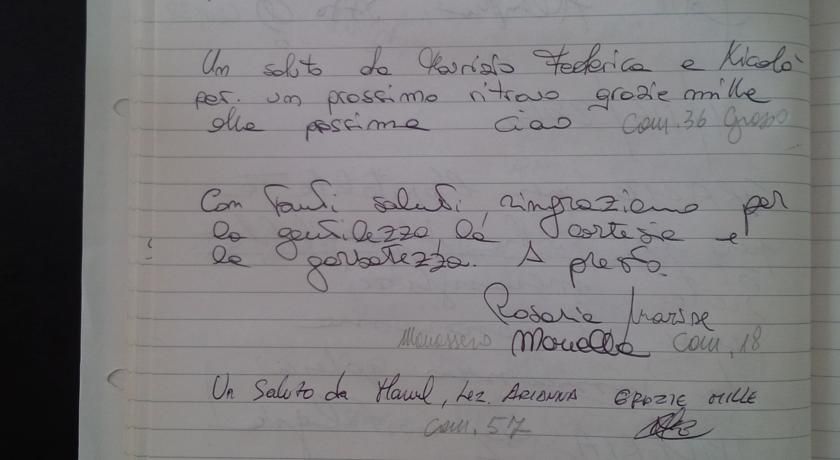 Un saluto da Maurizio Federica e Nicolò
per un prossimo ritrovo grazie mille
alla prossima ciao Com. 36 Grosso
Con tanti saluti ringraziamo per
la gentilezza, la cortesia e
la garbatezza. A presto.
Rosaria
Com. 18
Un Saluto da ARIANNA GRAZIE MILLE
Com. 57